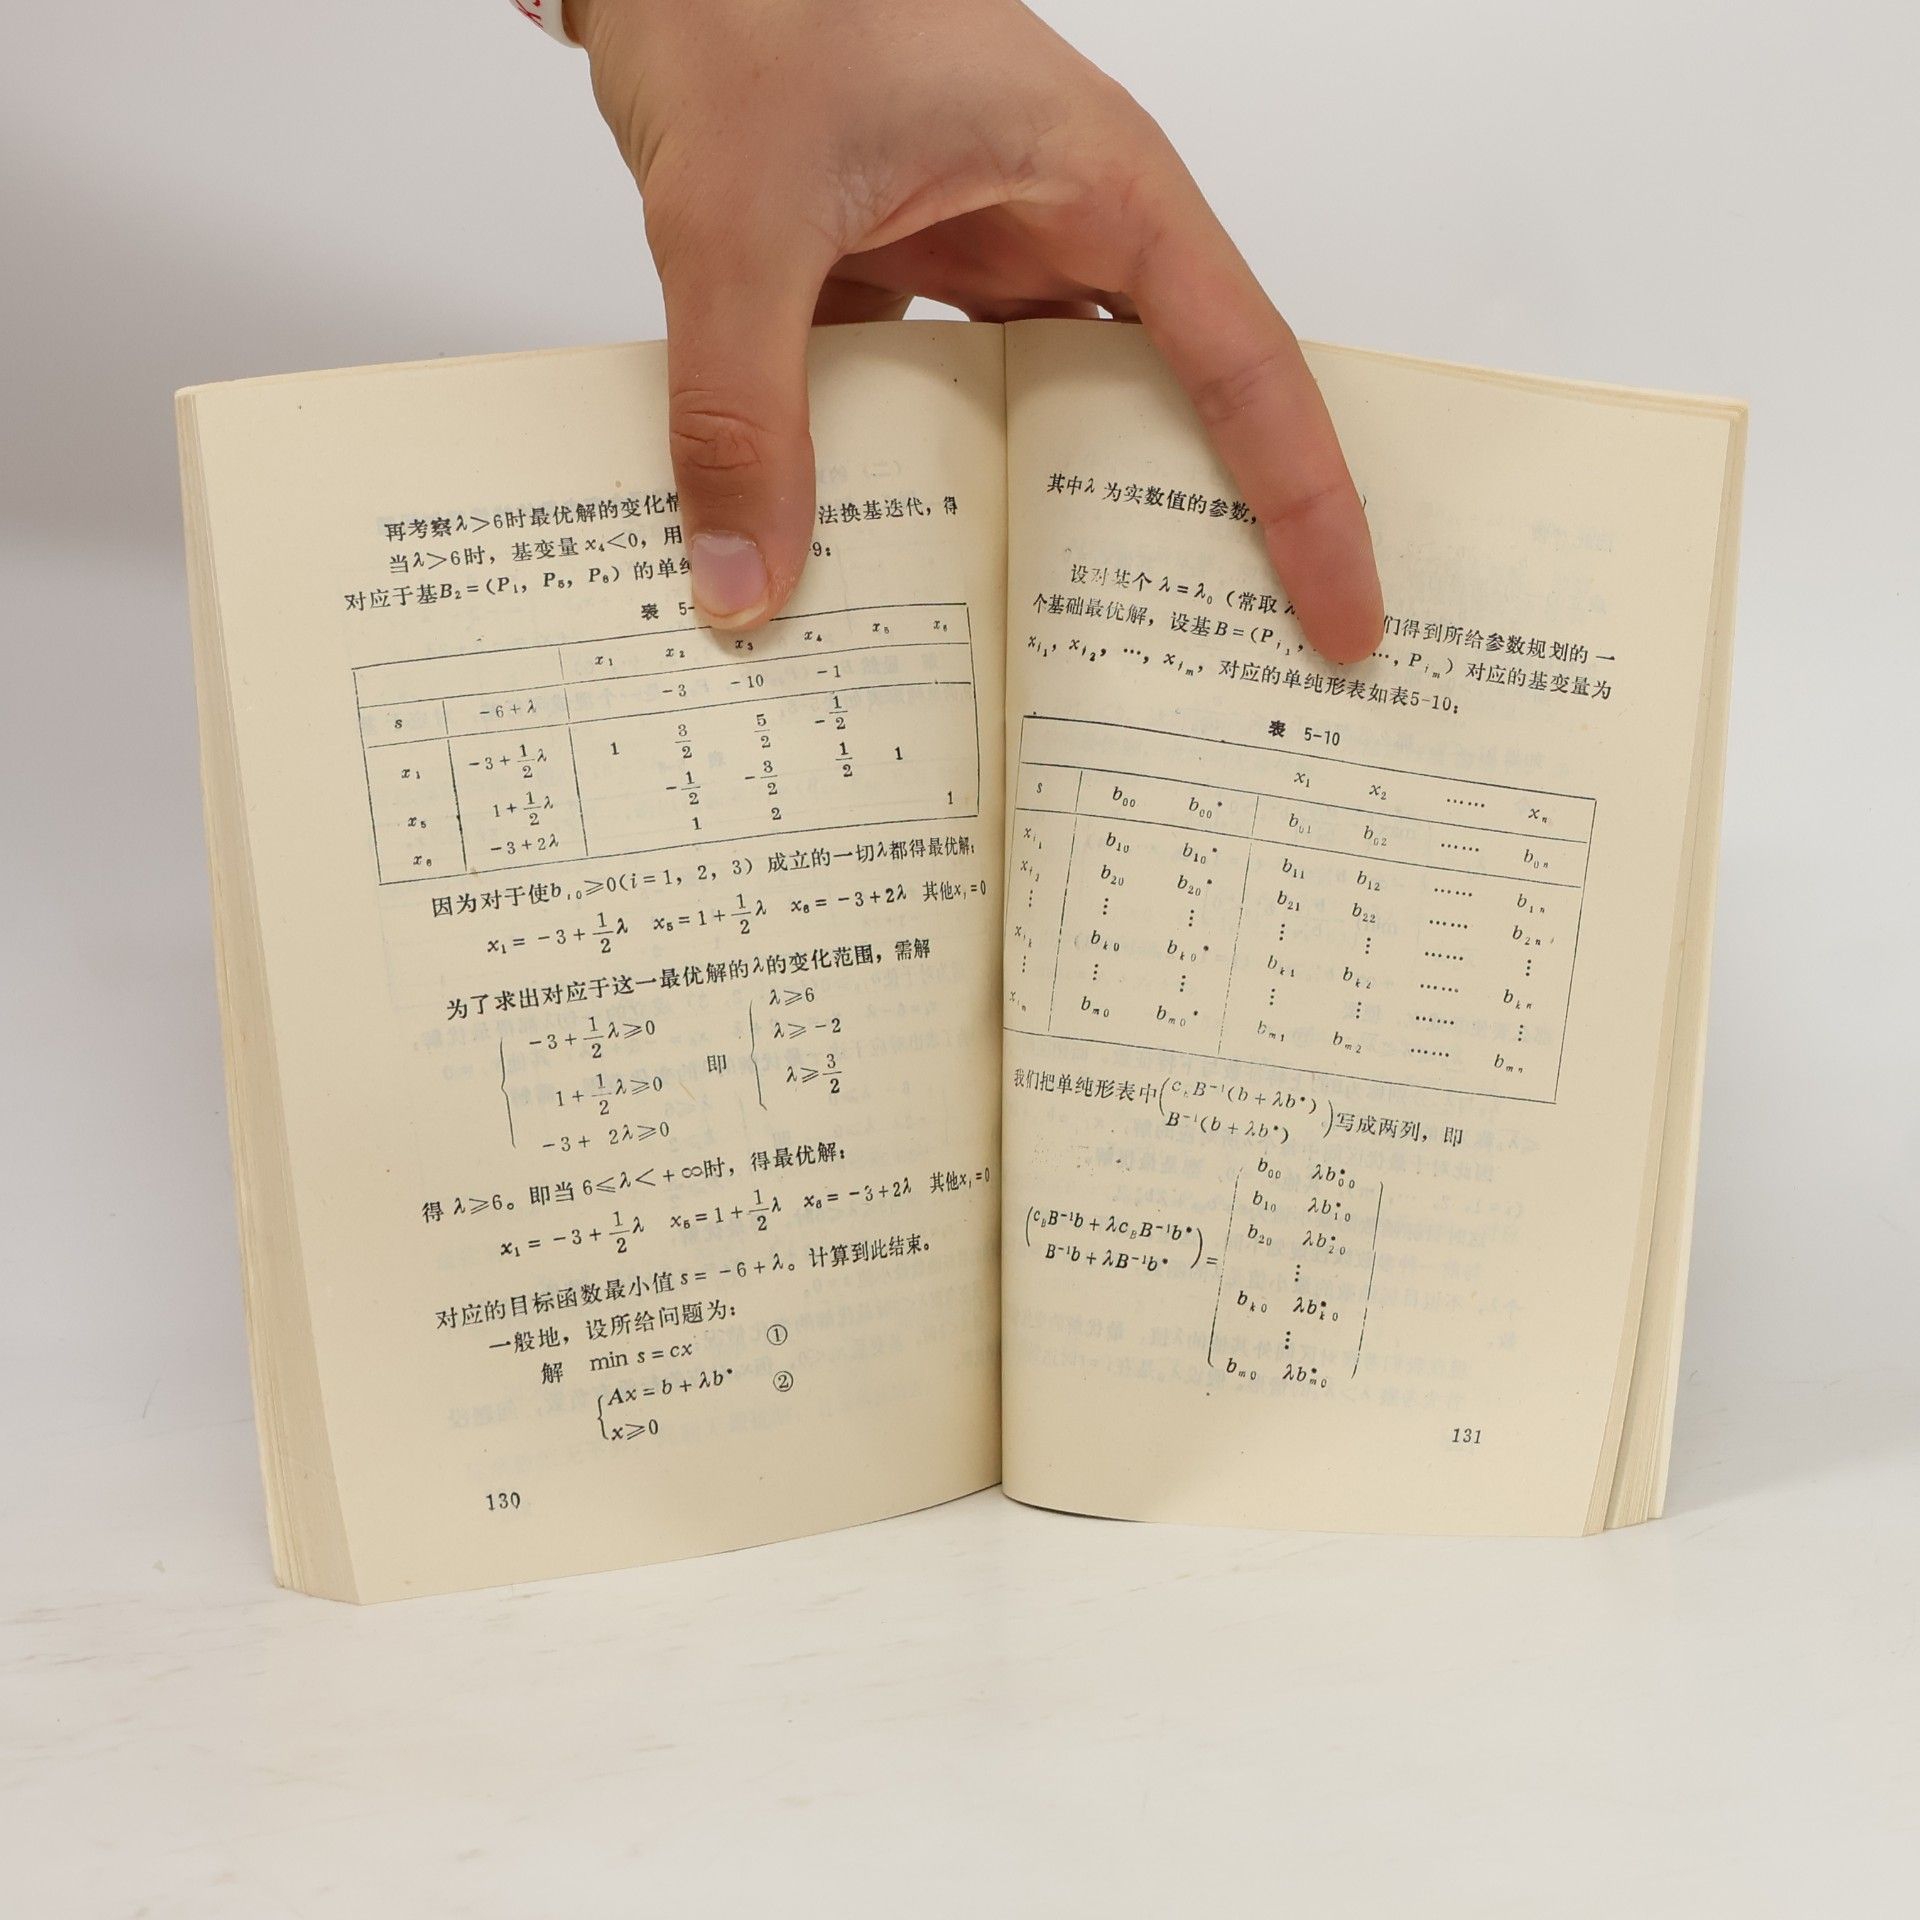 再考察λ>6时最优解的变化
当λ>6时，基变量 x₄<0，用 法换基迭代，得
对应于基B₂=(P₁，P₅，P₆) 的单 9：
表 5-
x₁ x₂ x₃ x₄ x₅ x₆
s -6+λ -3 -10 -1
x₁ -3+1/2λ 1 3/2 5/2 -1/2
x₅ 1+1/2λ -1/2 -3/2 1/2 1
x₆ -3+2λ 1 2 1
因为对于使bᵢ₀⩾0(i=1，2，3) 成立的一切λ都得最优解：
x₁=-3+1/2λ x₅=1+1/2λ x₆=-3+2λ 其他xⱼ=0
为了求出对应于这一最优解的λ的变化范围，需解
-3+1/2λ⩾0 λ⩾6
1+1/2λ⩾0 即 λ⩾-2
-3+ 2λ⩾0 λ⩾3/2
得 λ⩾6。即当 6⩽λ<+∞时，得最优解：
x₁=-3+1/2λ x₅=1+1/2λ x₆=-3+2λ 其他xⱼ=0
对应的目标函数最小值 s=-6+λ。计算到此结束。
一般地，设所给问题为：
解 min s=cx ①
{Ax=b+λb* ②
x⩾0
130
其中λ 为实数值的参数，
设对某个 λ=λ₀ (常取 们得到所给参数规划的一
个基础最优解，设基B=(Pⱼ₁， …，Pⱼₘ) 对应的基变量为
xⱼ₁，xⱼ₂，…，xⱼₘ，对应的单纯形表如表5-10：
表 5-10
x₁ x₂ …… xₙ
s b₀₀ b₀₀* b₀₁ b₀₂ …… b₀ₙ
xⱼ₁ b₁₀ b₁₀* b₁₁ b₁₂ …… b₁ₙ
xⱼ₂ b₂₀ b₂₀* b₂₁ b₂₂ …… b₂ₙ
⋮ ⋮ ⋮ ⋮ ⋮ …… ⋮
xⱼₖ bₖ₀ bₖ₀* bₖ₁ bₖ₂ …… bₖₙ
⋮ ⋮ ⋮ ⋮ ⋮ …… ⋮
xⱼₘ bₘ₀ bₘ₀* bₘ₁ bₘ₂ …… bₘₙ
我们把单纯形表中(c_B B⁻¹(b+λb*)
B⁻¹(b+λb*))写成两列，即
(c_B B⁻¹b+λc_B B⁻¹b*
B⁻¹b+λB⁻¹b*)=
b₀₀ λb*₀₀
b₁₀ λb*₁₀
b₂₀ λb*₂₀
⋮
bₖ₀ λb*ₖ₀
⋮
bₘ₀ λb*ₘ₀
131